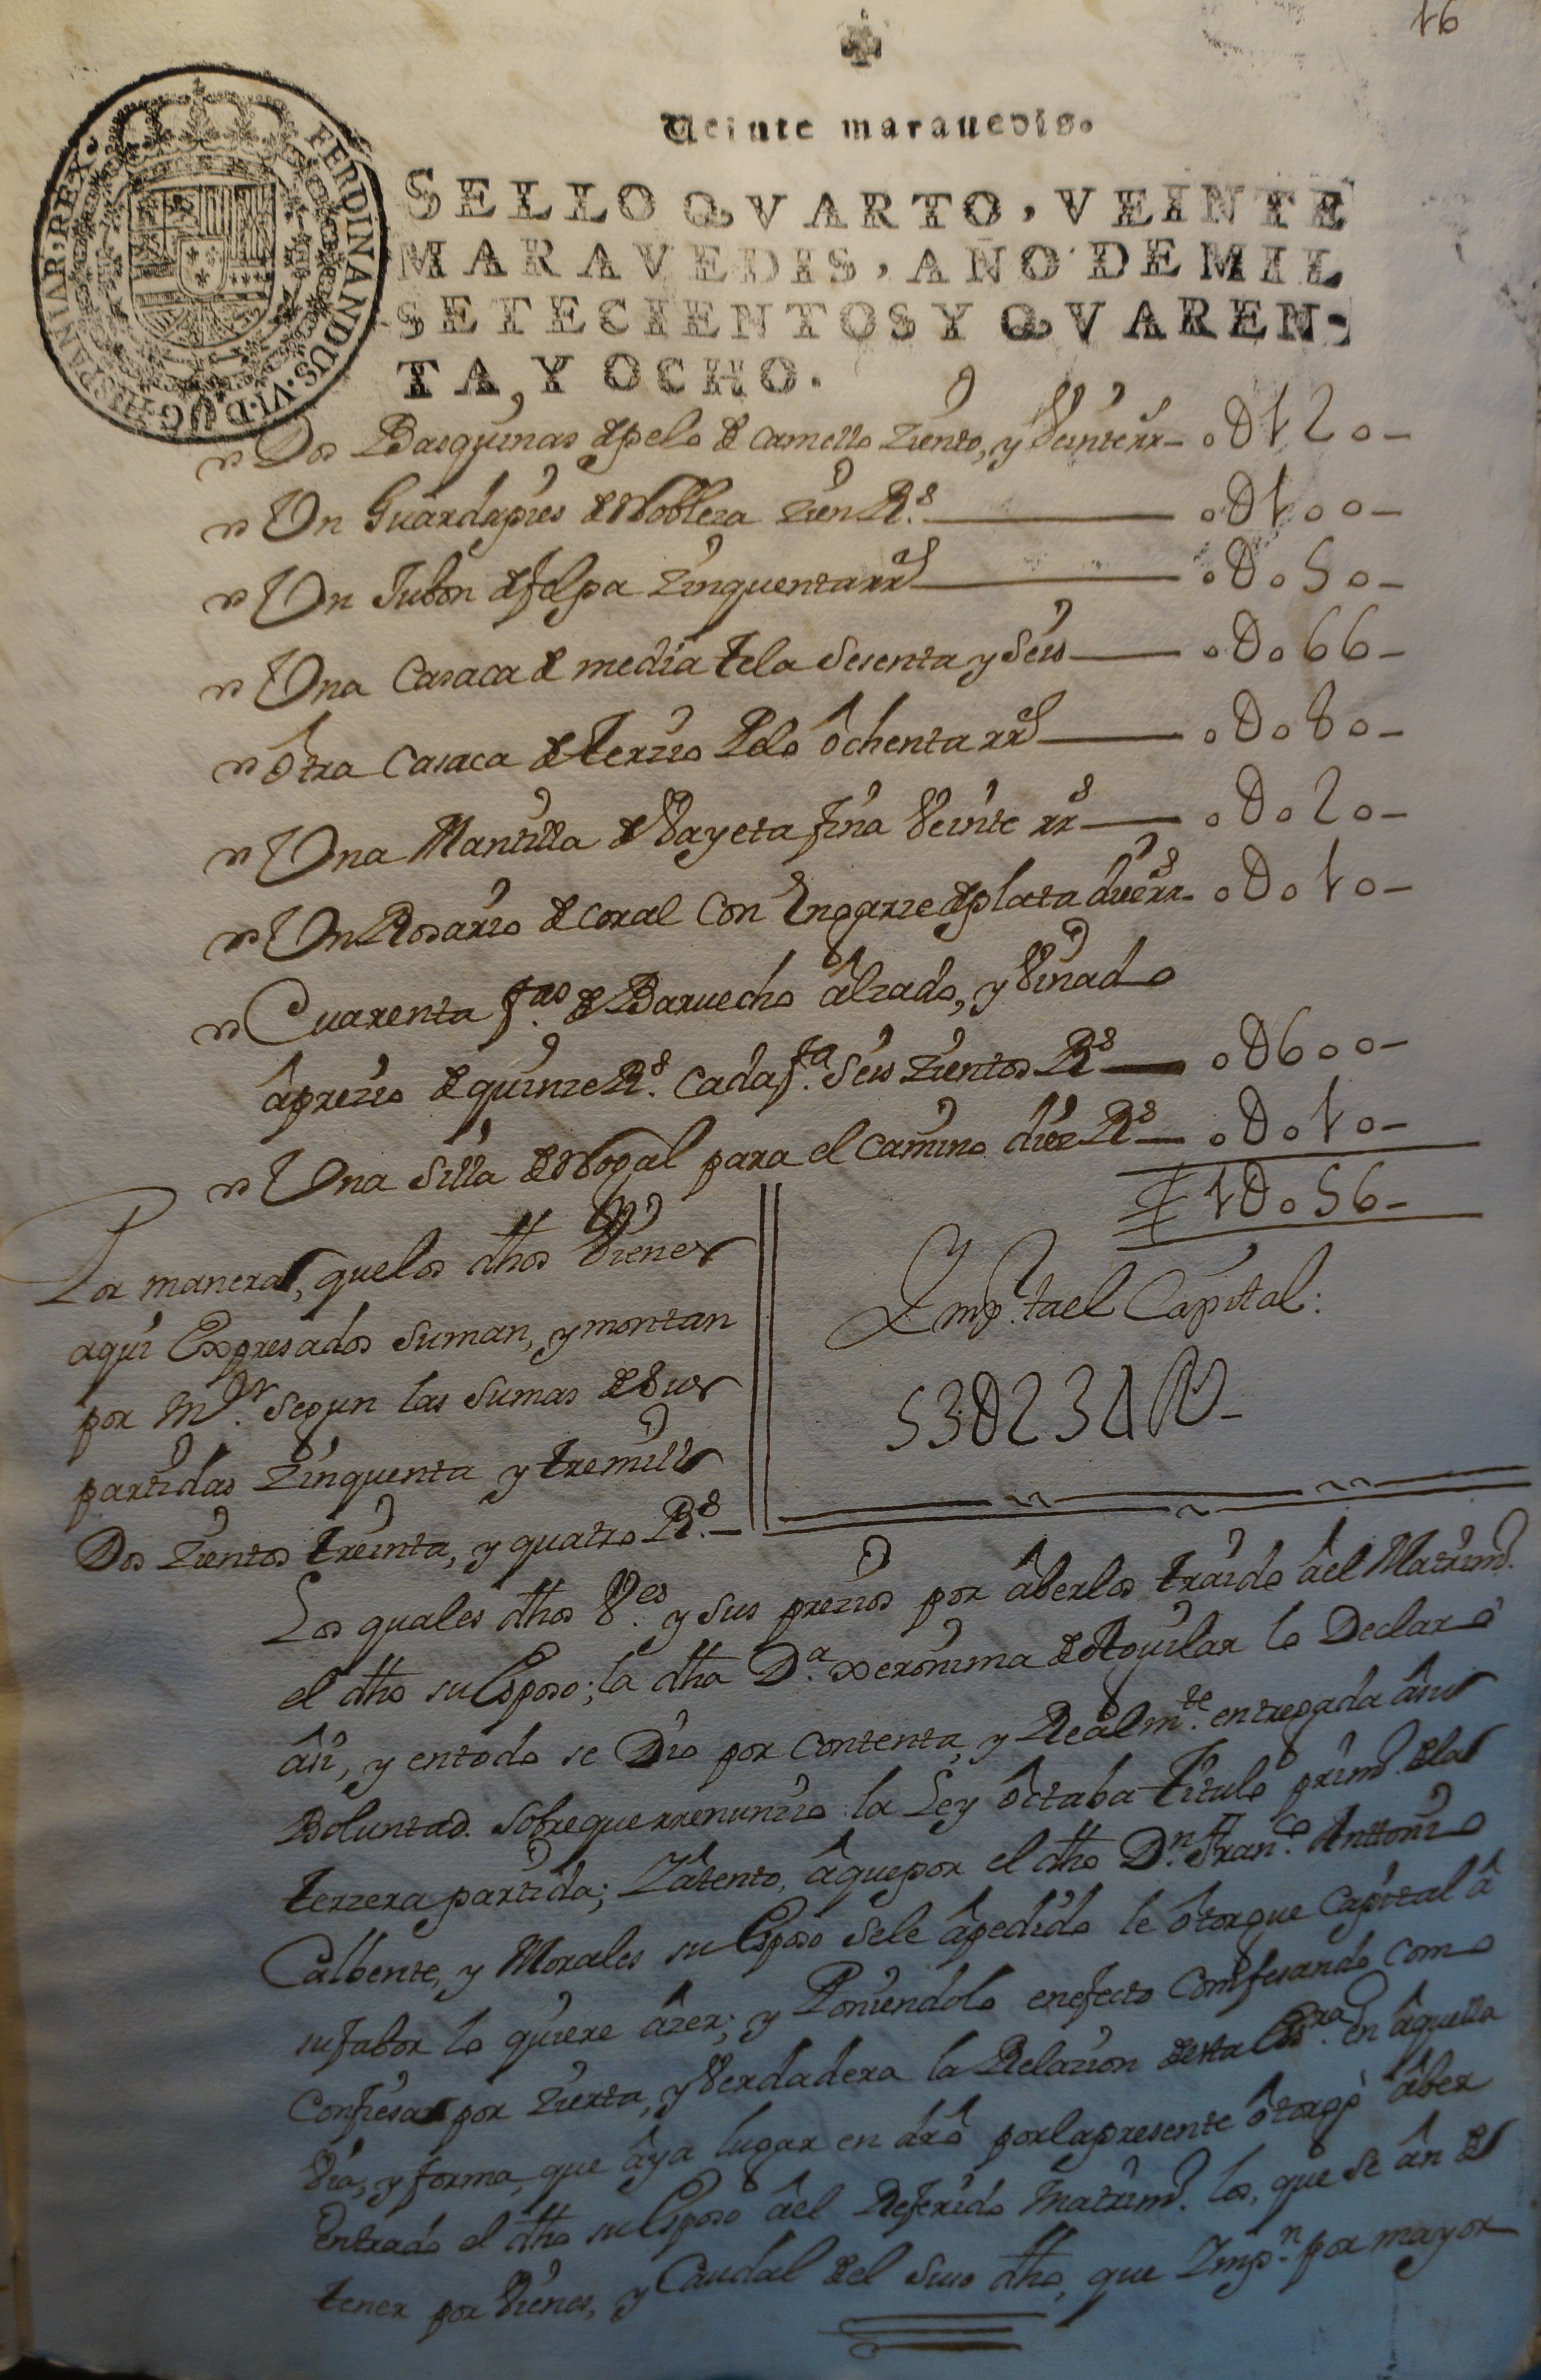 16
Veinte maravedis.
SELLO QVARTO, VEINTE
MARAVEDIS, AÑO DE MIL
SETECIENTOS Y QVAREN-
TA, Y OCHO.
FERDINANDUS. VI. D. G. HISPANIAR. REX.
Dos Basquinas de pelo de camello ziento, y Veinte rrs — 0120 —
Un Guardapies de Nobleza zien Rs. — 0100 —
Un Jubon de felpa zinquenta rrs — 0050 —
Una Casaca de media tela Sesenta y Seis — 0066 —
ôtra Casaca de terzio Pelo ôchenta rrs — 0080 —
Una Mantilla de Vayeta fina Veinte rrs — 0020 —
Un Rosario de coral con Engarze de plata diez rrs — 0010 —
Cuarenta fas. de Barvecho âlzado, y Vinado
âprezio de quinze Rs. Cada fa. Seis zientos Rs — 0600 —
Una Silla de Nogal para el camino diez Rs — 0010 —
1056 —
Por manera, que los dhos Vienes
aqui Expresados Suman, y montan
por Mor. Segun las Sumas de Sus
partidas zinquenta y tres mill
Dos zientos treinta, y quatro Rs. —
Imp.ta el Capital:
53U234 Rs —
Los quales dhos Ves. y Sus prezios por âberlos traido âel Matrimo.
el dho su Esposo; la dha Da. Xeronima de Aguilar lo Declarò
âsi, y entodo se Dio por contenta, y Realmte. entregada âsu
Boluntad. Sobre que rrenunzio la Ley ôctaba titulo primo. de la
terzera partida; Zâtento, âque por el dho Dn. Franco. Anttonio
Calbente, y Morales su Esposo Sele âpedido le ôtorgue Capital â
su fabor lo quiere âzer; y Poniendolo enefecto Confesando como
Confiesa por zierta, y Verdadera la Relazion desta Essra. en âquella
Via, y forma, que âya lugar en dro por la presente ôtorgò âber
entrado el dho su Esposo âel Referido Matrimo. los, que se ân de
tener por Vienes, y Caudal del Suso dho, que Impn. por mayor